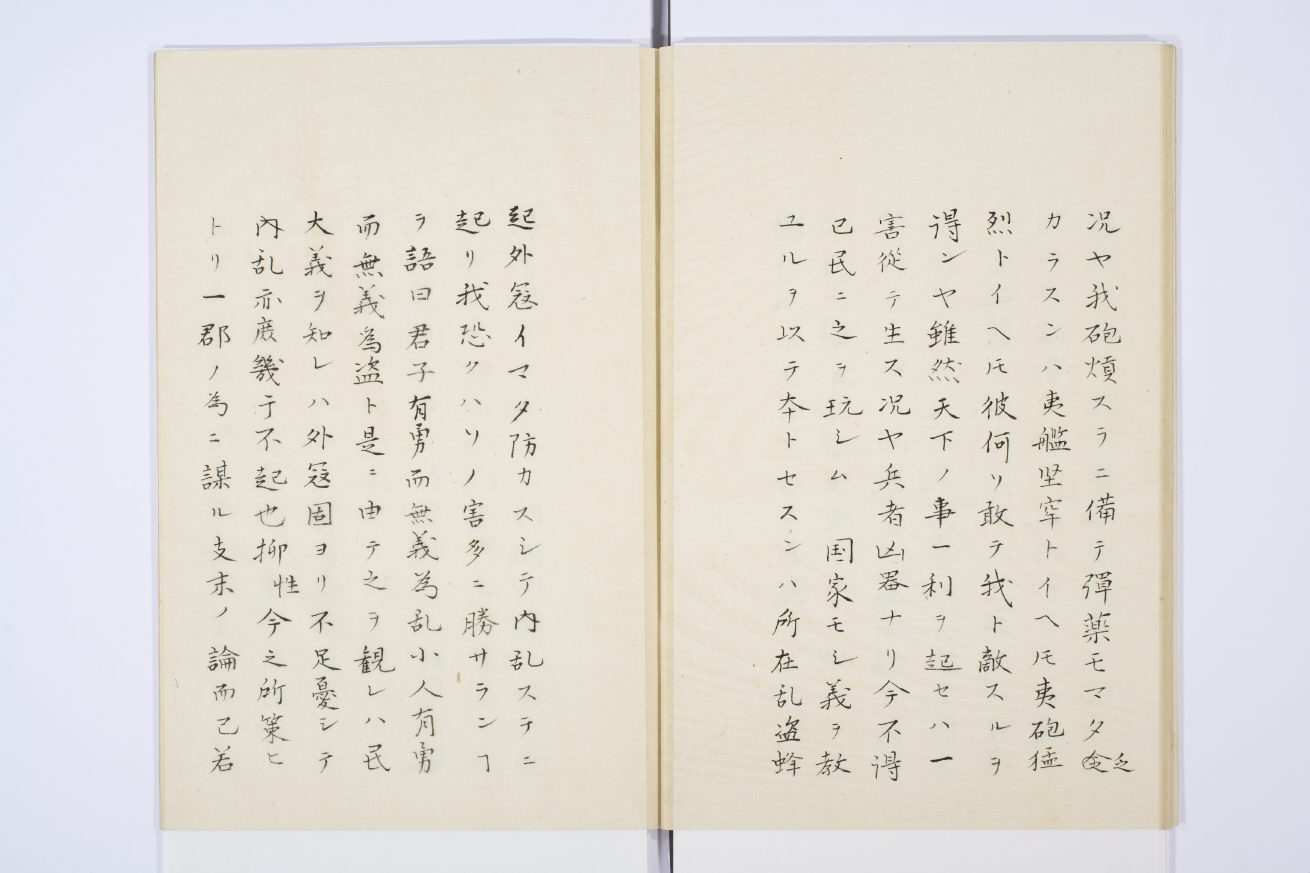 况ヤ我砲熕スラニ備テ彈薬モマタ乏
カラスンハ夷艦坚牢トイヘ𪜈夷砲猛
烈トイヘ𪜈彼何ソ敢テ我ト敵スルヲ
得ンヤ雖然天下ノ事一利ヲ起セハ一
害従テ生ス况ヤ兵者凶器ナリ今不得
已民ニ之ヲ玩シム 国家モシ義ヲ教
ユルヲ以テ夲トセスンハ所在乱盗蜂
起外冦イマタ防カスシテ内乱ステニ
起リ我恐クハソノ害多ニ勝サランヿ
ヲ語曰君子有勇而無義為乱小人有勇
而無義為盗ト是ニ由テ之ヲ観レハ民
大義ヲ知レハ外冦固ヨリ不足憂シテ
内乱亦庻幾于不起也抑性今之所策ヒ
トリ一郡ノ為ニ謀ル支末ノ論而已若